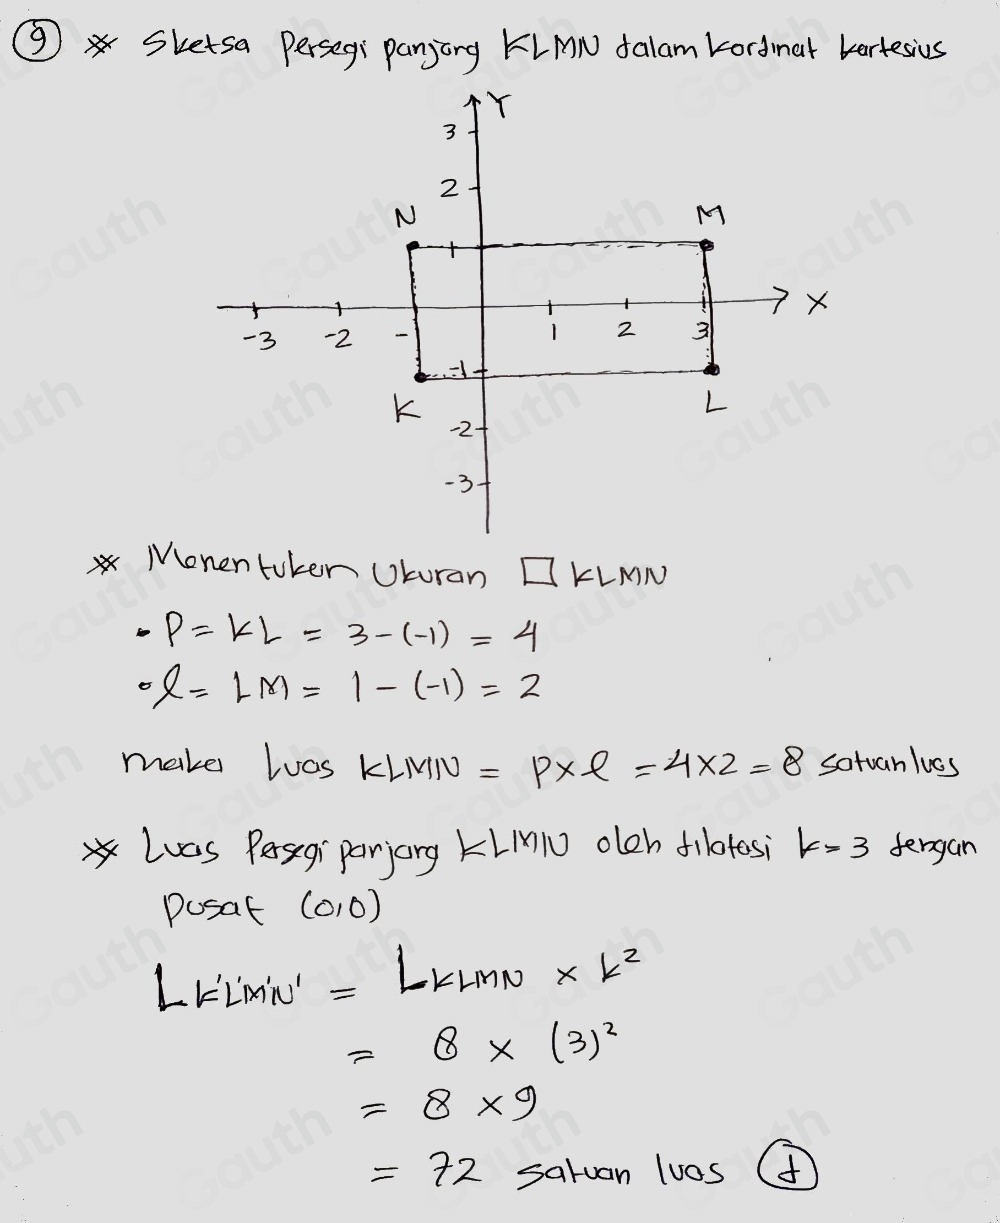 9 ※ Sketsa Persegi panjang KLMN dalam kordinat kartesius
Y
3
2
N M
1
-3 -2 - 1 2 3 X
-1
K L
-2
-3
※ Menentukan Ukuran □ KLMN
• P = KL = 3 - (-1) = 4
• l = LM = 1 - (-1) = 2
maka Luas KLMN = p x l = 4 x 2 = 8 satuan luas
※ Luas Persegi panjang KLMN oleh dilatasi k = 3 dengan
pusat (0,0)
L K'L'M'N' = L KLMN x k²
= 8 x (3)²
= 8 x 9
= 72 satuan luas d
Gauth